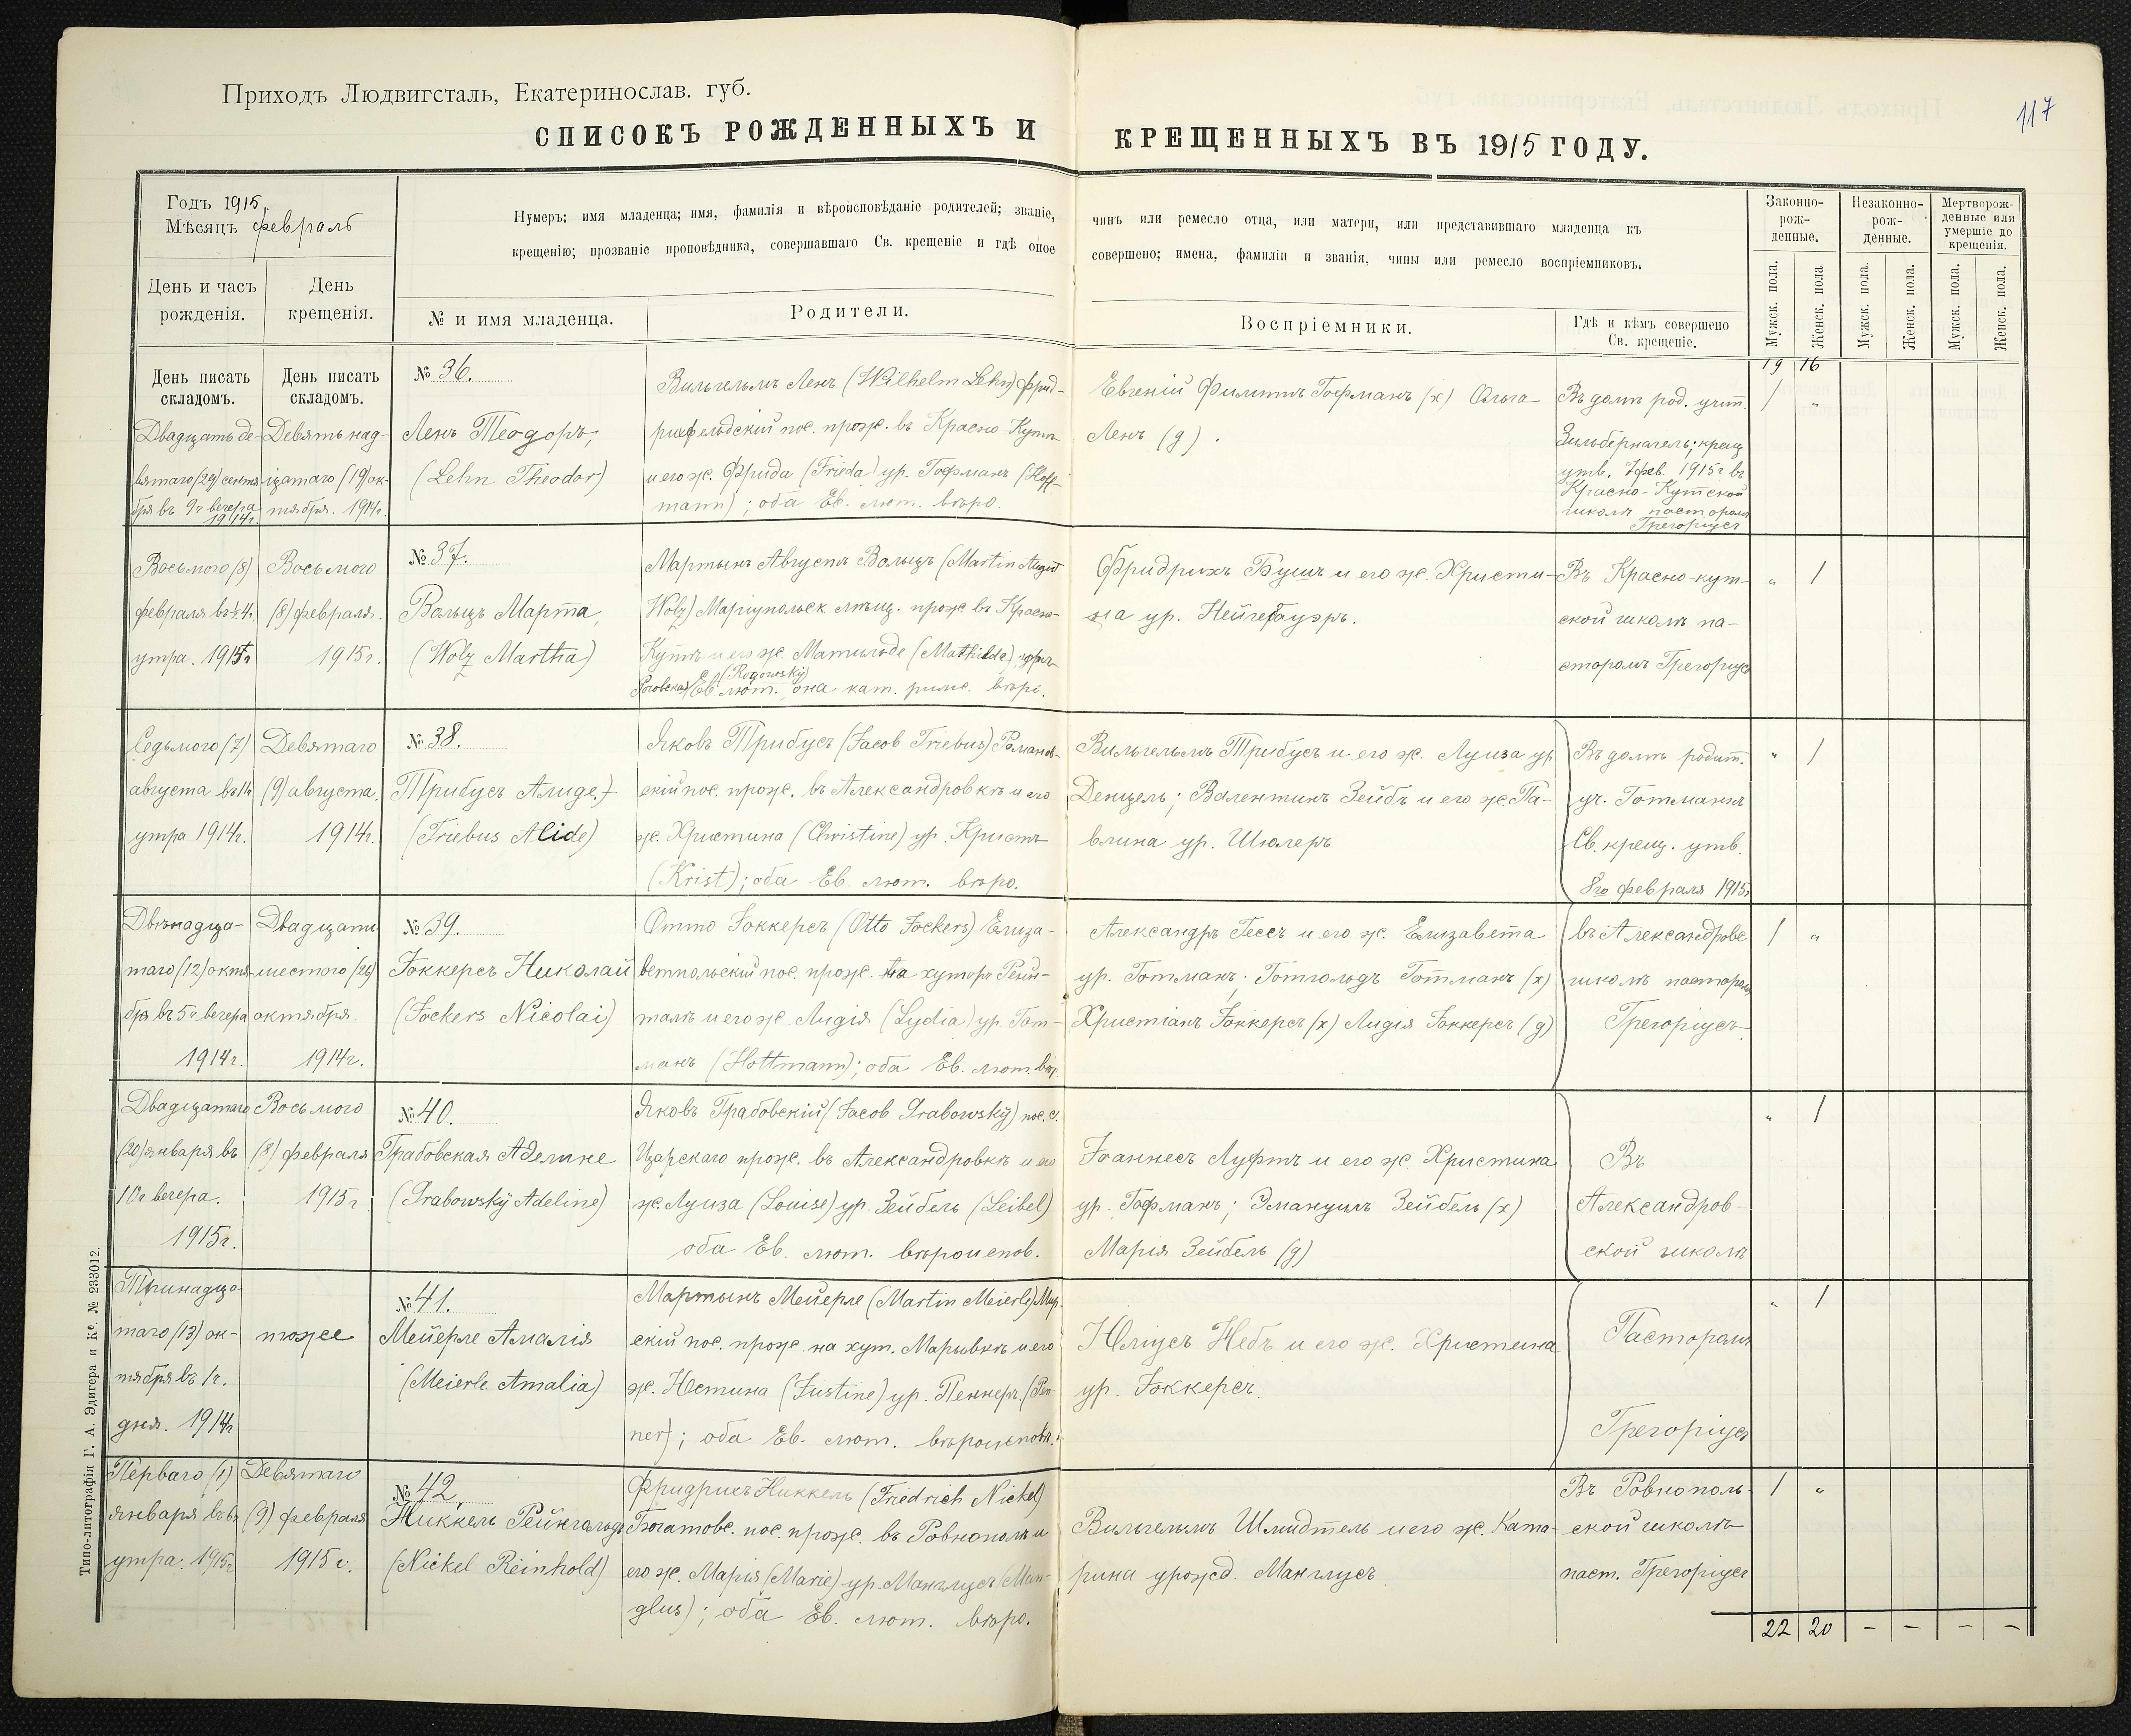 117
Приходъ Людвигсталь, Екатеринослав. губ.
СПИСОКЪ РОЖДЕННЫХЪ И КРЕЩЕННЫХЪ ВЪ 1915 ГОДУ.
Годъ 1915.
Мѣсяцъ февраль
Нумеръ; имя младенца; имя, фамилія и вѣроисповѣданіе родителей; званіе, чинъ или ремесло отца, или матери, или представившаго младенца къ
крещенію; прозваніе проповѣдника, совершавшаго Св. крещеніе и гдѣ оное совершено; имена, фамиліи и званія, чины или ремесло воспріемниковъ.
День и часъ
рожденія.
День
крещенія.
№ и имя младенца.
Родители.
Воспріемники.
Гдѣ и кѣмъ совершено
Св. крещеніе.
Законно-
рож-
денные.
Незаконно-
рож-
денные.
Мертворож-
денные или
умершіе до
крещенія.
Мужск. пола.
Женск. пола
Мужск. пола.
Женск. пола.
Мужск. пола.
Женск. пола.
19 16
День писать
складомъ.
Двадцать де-
вятаго (29) сентя-
бря въ 9ч вечера
1914г.
День писать
складомъ.
Девятьнад-
цатаго (19) ок-
тября. 1914г.
№ 36.
Ленъ Теодоръ,
(Lehn Theodor)
Вильгельмъ Ленъ (Wilhelm Lehn) Фрид-
рихфельдскій пос. прож. въ Красно-Кутѣ
и его ж. Фрида (Frieda) ур. Гофманъ (Hoff-
mann); оба Ев. лют. вѣро.
Евгеній Филиппъ Гофманъ (х) Ольга
Ленъ (g).
Въ домѣ род. учит.
Зильбернагель; крещ
утв. 7 фев. 1915г въ
Красно-Кутской
школѣ пасторомъ
Грегоріусъ
1 "
Восьмого (8)
февраля въ ½ 4ч.
утра. 1915г
Восьмого
(8) февраля.
1915г.
№ 37.
Вольцъ Марта,
(Wolz Martha)
Мартынъ Августъ Вольцъ (Martin August
Wolz) Маріупольск мѣщ. прож. въ Красно-
Кутѣ и его ж. Матильде (Mathilde) урж.
Роговская (Rogowsky) Ев лют. она кат. римс. вѣро.
Фридрихъ Бушъ и его ж. Христи-
на ур. Нейгебауэръ.
Въ Красно-кут-
ской школѣ па-
сторомъ Грегоріусъ
" 1
Седьмого (7)
августа въ 1ч
утра 1914г.
Девятаго
(9) августа.
1914г.
№ 38.
Трибусъ Алиде. †
(Triebus Alide)
Яковъ Трибусъ (Jacob Triebus) Романов-
скій пос. прож. въ Александровкѣ и его
ж. Христина (Christine) ур. Кристъ
(Krist); оба Ев. лют. вѣро.
Вильгельмъ Трибусъ и его ж. Луиза ур
Денцель; Валентинъ Зейбъ и его ж. Па-
влина ур. Шюлеръ
Въ домѣ родит.
уч. Готманнъ
Св. крещ. утв.
8го февраля 1915г
" 1
Двѣнадца-
таго (12) октя-
бря въ 5ч вечера
1914г.
Двадцати
шестого (26)
октября.
1914г.
№ 39.
Фоккерсъ Николай
(Fockers Nicolai)
Отто Фоккерсъ (Otto Fockers) Елиза-
ветпольскій пос. прож. на хуторѣ Рейн-
таль и его ж. Лидія (Lydia) ур. Гот-
манъ (Hottmann); оба Ев. лют. вѣр.
Александръ Гессъ и его ж. Елизавета
ур. Готманъ; Готгольдъ Готманъ (х)
Христіанъ Фоккерсъ (х) Лидія Фоккерсъ (g)
въ Александровс
школѣ пасторомъ
Грегоріусъ
1 "
Двадцатаго
(20) января въ
10ч вечера.
1915г.
Восьмого
(8) февраля
1915г
№ 40.
Грабовская Аделине
(Grabowsky Adeline)
Яковъ Грабовскій (Jacob Grabowsky) пос. с.
Царскаго прож. въ Александровкѣ и его
ж. Луиза (Louise) ур. Зейбель (Seibel)
оба Ев. лют. вѣроиспов.
Іоаннесъ Луфтъ и его ж. Христина
ур. Гофманъ; Эмануилъ Зейбель (х)
Марія Зейбель (g)
Въ
Александров-
ской школѣ
" 1
Тринадца-
таго (13) ок-
тября въ 1ч.
дня. 1914г
тоже
№ 41.
Мейерле Амалія
(Meierle Amalia)
Мартынъ Мейерле (Martin Meierle) Мир-
скій пос. прож. на хут. Марьевкѣ и его
ж. Юстина (Justine) ур. Пеннеръ. (Pen-
ner); оба Ев. лют. вѣроисповѣ.
Юліусъ Небъ и его ж. Христина
ур. Фоккерсъ.
Пасторомъ
Грегоріусъ
" 1
Перваго (1)
января въ 6ч
утра. 1915г
Девятаго
(9) февраля
1915г.
№ 42.
Никкель Рейнгольдъ
(Nickel Reinhold)
Фридрихъ Никкель (Friedrich Nickel)
Богатовс. пос. прож. въ Ровнополѣ и
его ж. Марія (Marie) ур. Манглусъ (Man-
glus); оба Ев. лют. вѣро.
Вильгельмъ Шмидтель и его ж. Ката-
рина урожд. Манглусъ
Въ Ровнополь-
ской школѣ
паст. Грегоріусъ
1 "
22 20 – – – –
Типо-литографія Г. А. Эдигера и Кº. № 233012.